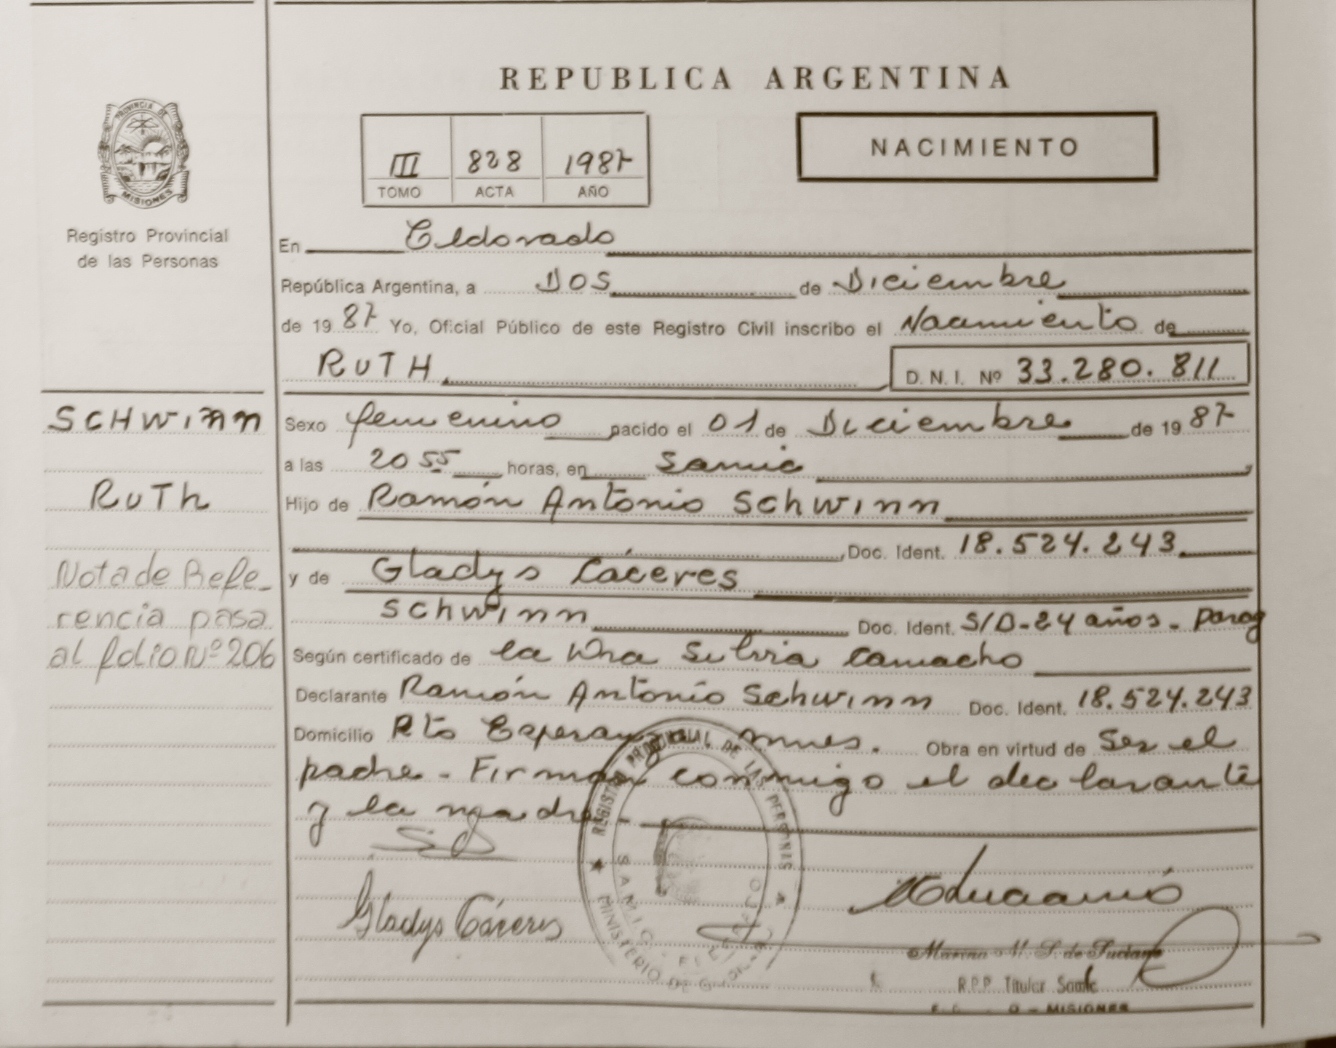 REPUBLICA ARGENTINA
PROVINCIA DE
MISIONES
Registro Provincial
de las Personas
III 828 1987
TOMO ACTA AÑO
NACIMIENTO
En Eldorado
República Argentina, a DOS de Diciembre
de 1987 Yo, Oficial Público de este Registro Civil inscribo el Nacimiento de
RUTH D. N. I. Nº 33.280.811
SCHWINN
RUTh
Nota de Refe-
rencia pasa
al folio Nº 206
Sexo femenino nacido el 01 de Diciembre de 1987
a las 20 55 horas, en
Hijo de Ramón Antonio Schwinn
Doc. Ident. 18.524.243
y de Gladys Cáceres
Schwinn Doc. Ident. S/D-24 años - parag
Según certificado de la Silvia Camacho
Declarante Ramón Antonio Schwinn Doc. Ident. 18.524.243
Domicilio Pto Esperanza mnes. Obra en virtud de Ser el
padre - Firman conmigo el declarante
y la madre -
REGISTRO PROVINCIAL DE LAS PERSONAS
MINISTERIO DE
Gladys Cáceres
R.P.P. Titular
MISIONES